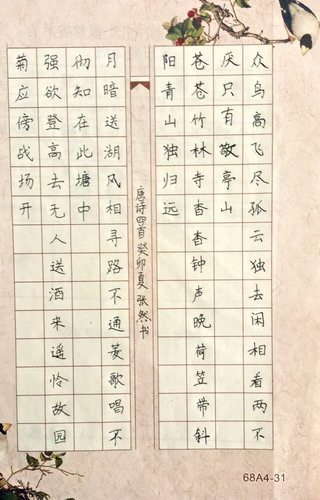 众鸟高飞尽孤云独去闲相看两不
厌只有敬亭山
苍苍竹林寺杳杳钟声晚荷笠带斜
阳青山独归远
唐诗四首癸卯夏张然书
月暗送湖风相寻路不通菱歌唱不
彻知在此塘中
强欲登高去无人送酒来遥怜故园
菊应傍战场开
68A4-31